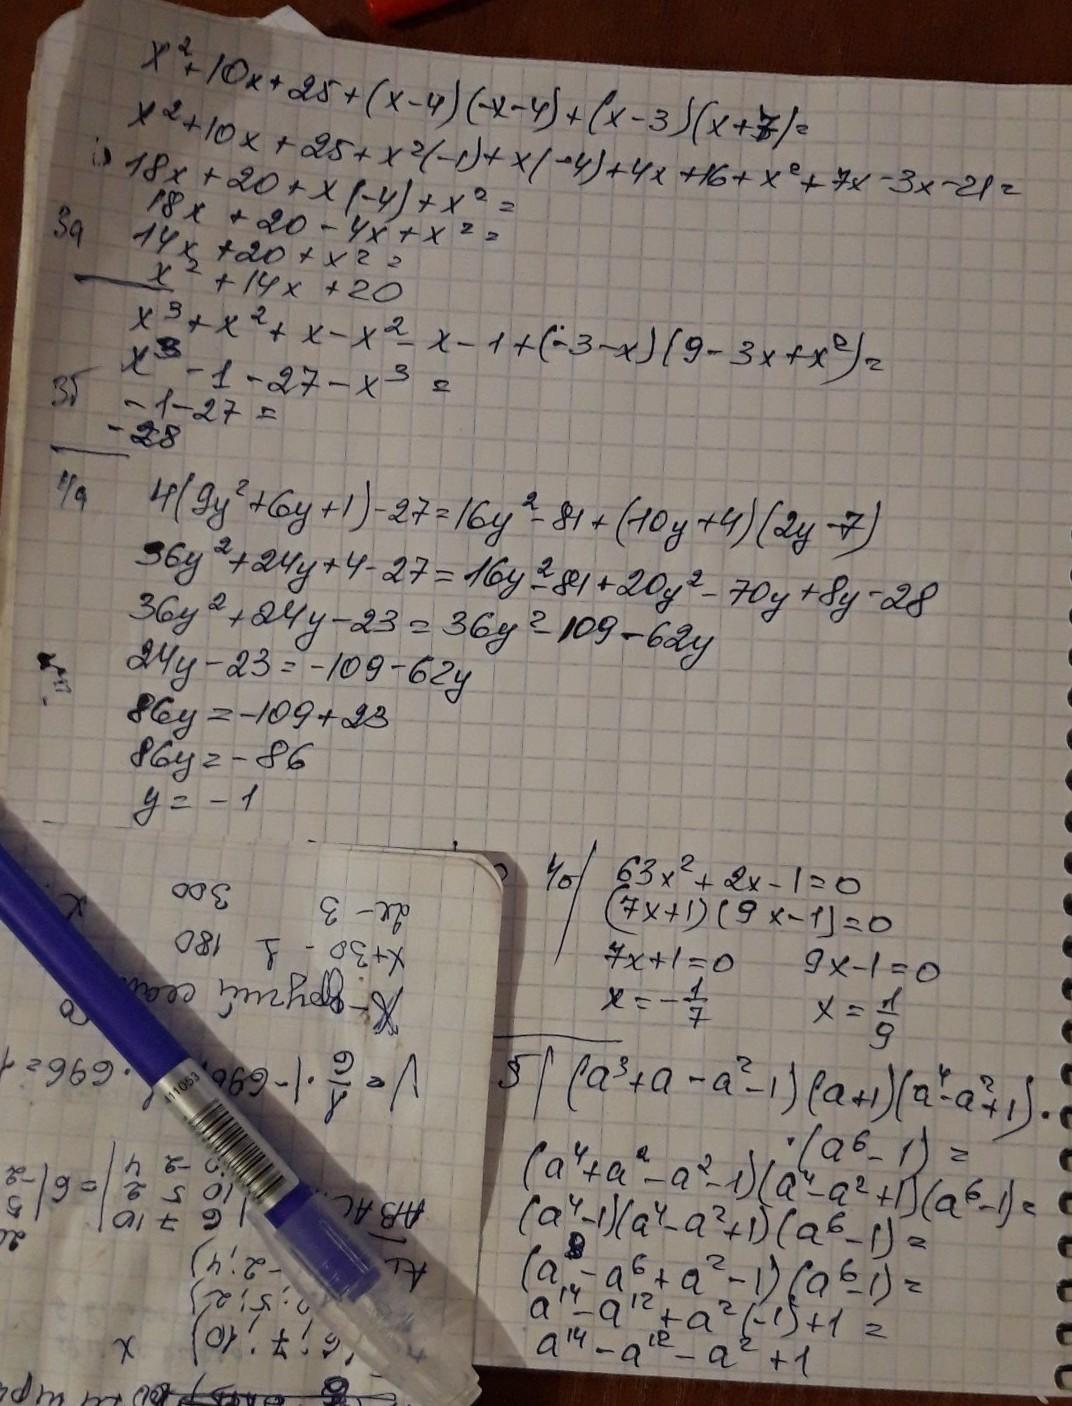 x²+10x+25+(x-4)(-x-4)+(x-3)(x+7)=
x²+10x+25+x²(-1)+x(-4)+4x+16+x²+7x-3x-21=
18x+20+x(-4)+x²=
18x+20-4x+x²=
3а 14x+20+x²=
x²+14x+20
x³+x²+x-x²-x-1+(-3-x)(9-3x+x²)=
x³-1-27-x³=
3б -1-27=
-28
4а 4(9y²+6y+1)-27=16y²-81+(10y+4)(2y-7)
36y²+24y+4-27=16y²-81+20y²-70y+8y-28
36y²+24y-23=36y²-109-62y
24y-23=-109-62y
86y=-109+23
86y=-86
y=-1
4б 63x²+2x-1=0
(7x+1)(9x-1)=0
7x+1=0 9x-1=0
x=-1/7 x=1/9
5 (a³+a-a²-1)(a+1)(a⁴-a²+1)·
·(a⁶-1)=
(a⁴+a²-a²-1)(a⁴-a²+1)(a⁶-1)=
(a⁴-1)(a⁴-a²+1)(a⁶-1)=
(a⁸-a⁶+a²-1)(a⁶-1)=
a¹⁴-a¹²+a²(-1)+1=
a¹⁴-a¹²-a²+1
300
2x-3
x+30-1 180
V=1/6·|-696|
·696=1
6 7 10
10 5 2
-2 4
=6|
7; 10)
5; 2)
-2; 4)
x
11053